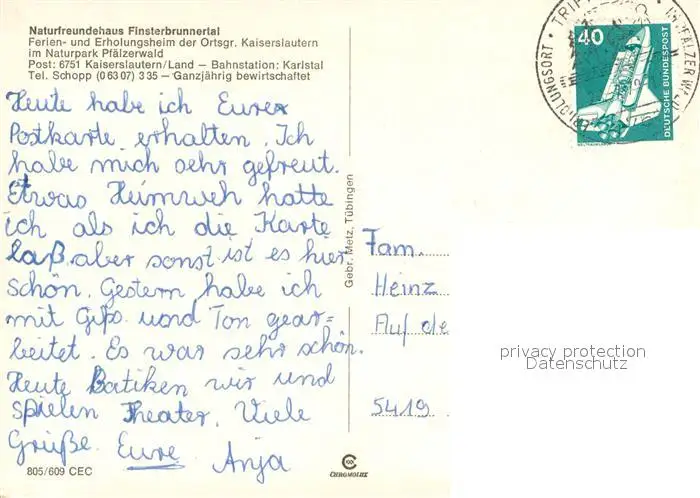 Naturfreundehaus Finsterbrunnertal
Ferien- und Erholungsheim der Ortsgr. Kaiserslautern
im Naturpark Pfälzerwald
Post: 6751 Kaiserslautern/Land — Bahnstation: Karlstal
Tel. Schopp (0 63 07) 3 35 — Ganzjährig bewirtschaftet
Heute habe ich Eurer
Postkarte erhalten. Ich
habe mich sehr gefreut.
Etwas Heimweh hatte
ich als ich die Karte
laß aber sonst ist es hier
schön. Gestern habe ich
mit Gips und Ton gear=
beitet. Es war sehr schön.
Heute Batiken wir und
spielen Theater. Viele
Grüße. Eure Anja
805/609 CEC
CHROMOLUX
Gebr. Metz, Tübingen
40
DEUTSCHE BUNDESPOST
Fam.
Heinz
Auf de
5419
privacy protection
Datenschutz